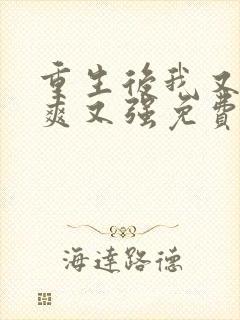 重生後我又
爽又強免費
海達路德